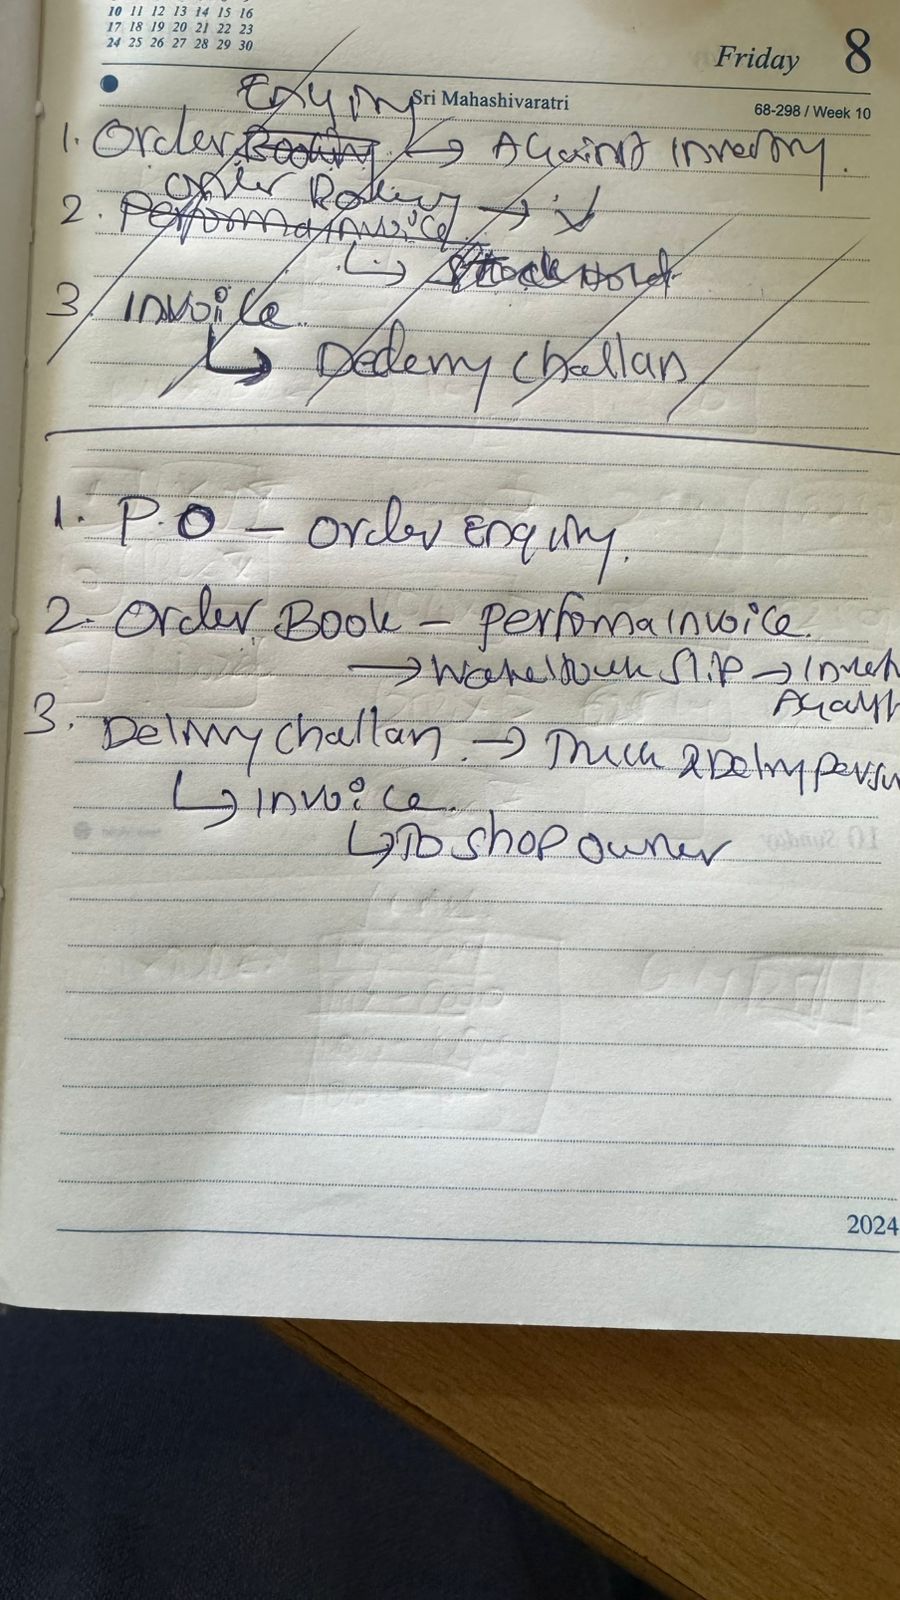 10 11 12 13 14 15 16
17 18 19 20 21 22 23
24 25 26 27 28 29 30
Friday 8
Sri Mahashivaratri
68-298 / Week 10
Enqiry
1. Order Booking → Against Inventry.
order
2. Performa invoice →
↳ Stock Hold
3. Invoice
↳ challan
1. P.O - Order Enquiry.
2. Order Book - Performa Invoice.
→ Slip →
3. Delivery challan. → Truck & Delivry
↳ Invoice.
↳ To shop owner
2024